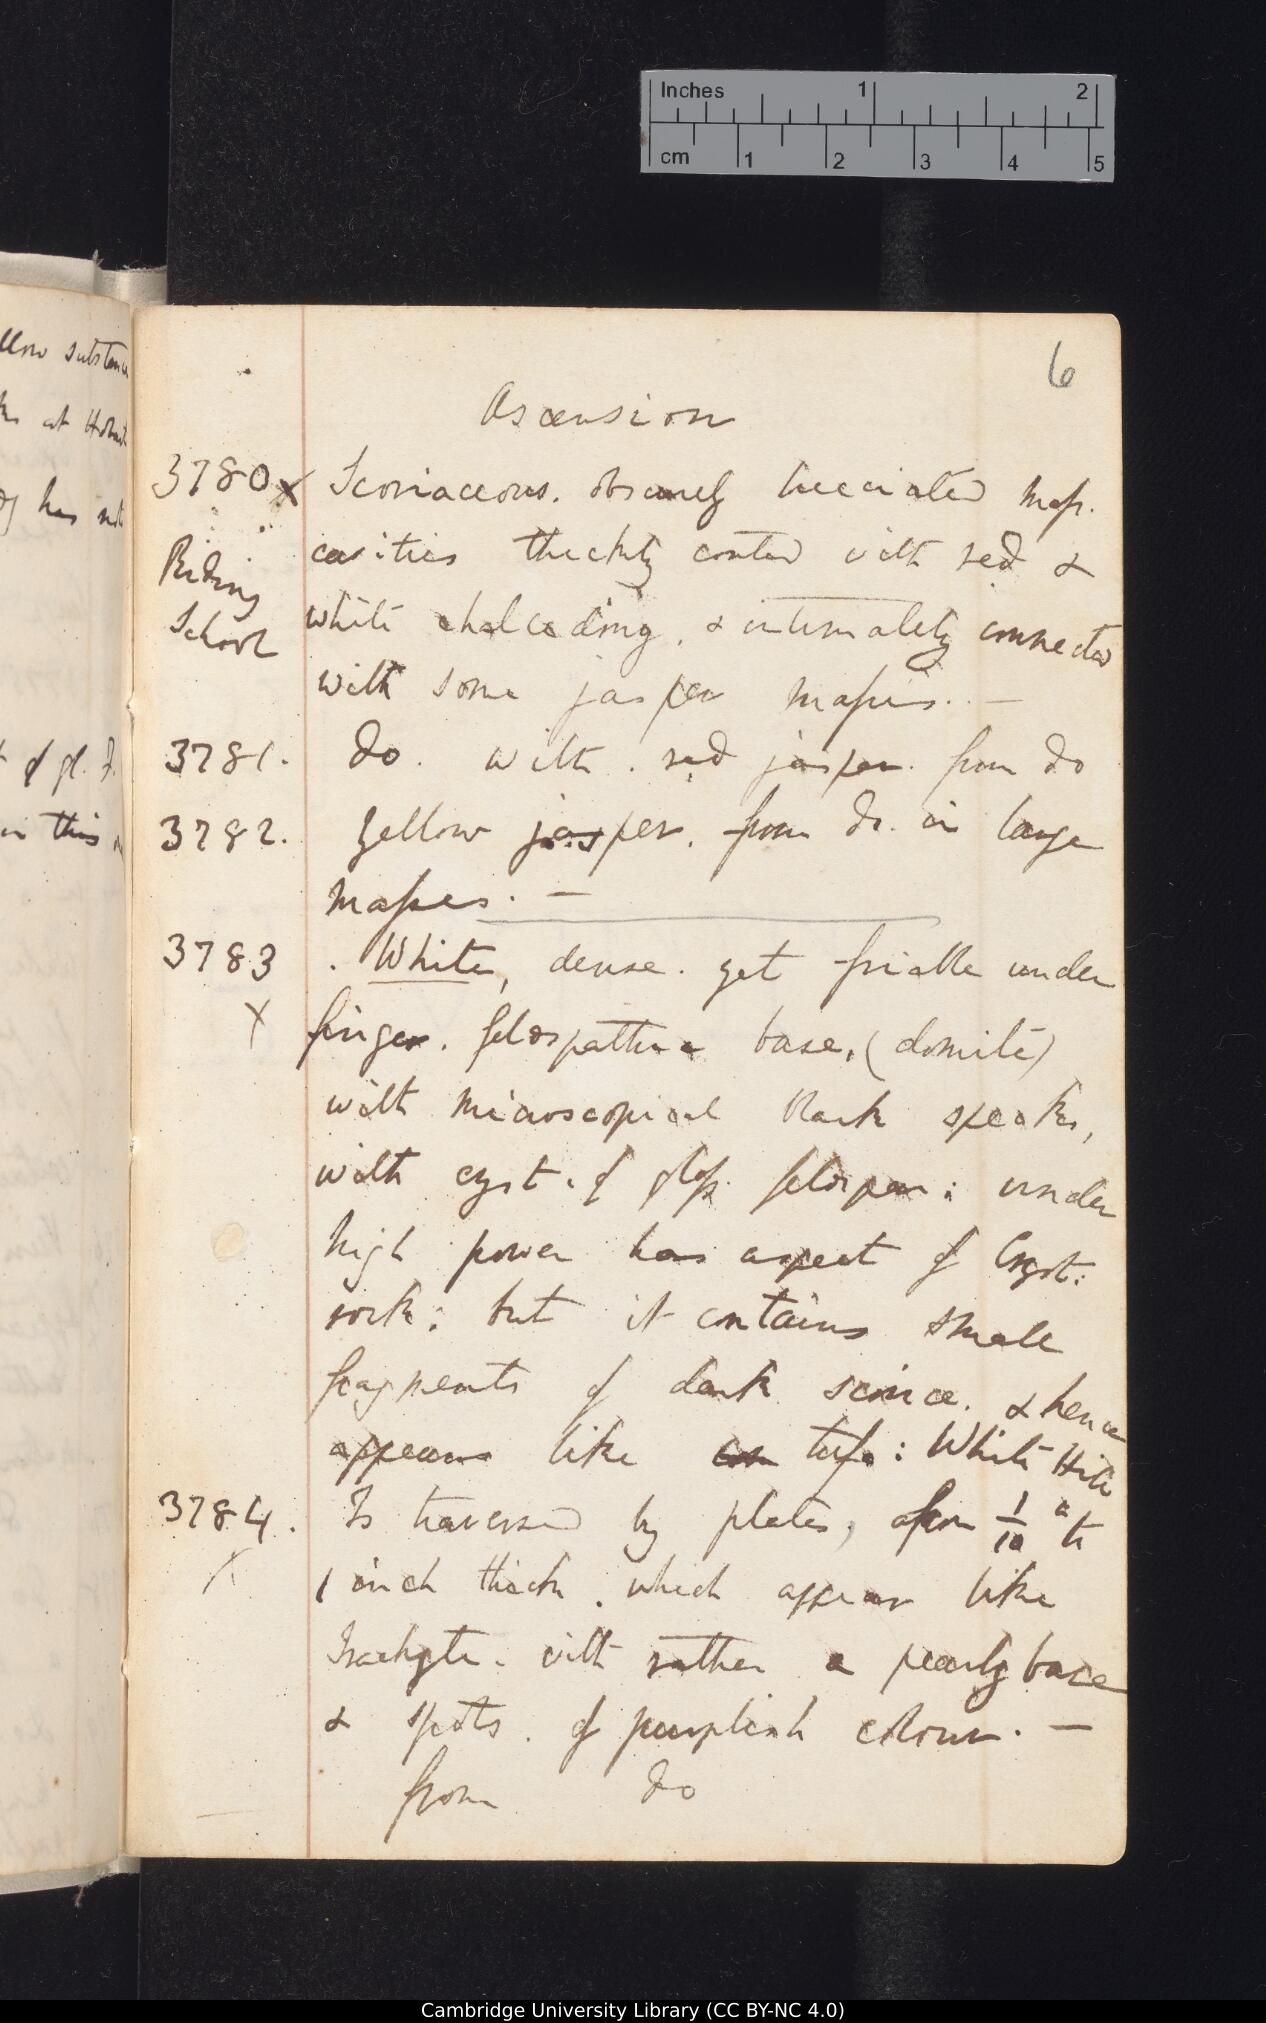 Inches 1 2
cm 1 2 3 4 5
6
Ascension
3780 x Scoriaceous. obscurely brecciated mass.
cavities thickly coated with red &
Riding
School
white chalcedony. & intermately connected
with some jasper masses. —
3781. do. with. red jasper from do
3782. Yellow jasper. from do. in large
masses. —
3783 . White, dense. yet friable under
x finger. feldspathic base, (domite)
with microscopical black specks,
with cryst. of glass. feldspar: under
high power has aspect of Cryst:
rock: but it contains small
fragments of dark scoriæ. & hence
appears like tufa: White Hill
3784. Is traversed by plates, from 1/10 to
x 1 inch thick. which appear like
Trachyte. with rather a pearly base
& spots. of purplish colour. —
from do
llow substance
at Hobart
has not
of gl. F.
in this
Cambridge University Library (CC BY-NC 4.0)